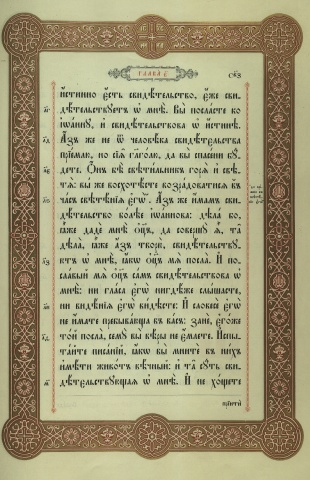 ГЛАВА Є҃
с҃ѯз
и҆́стинно є҆́сть свидѣ́тельство, є҆́же сви-
дѣ́тельствꙋетъ ѡ҆ мнѣ̀. Вы̀ посла́сте ко
і҆ѡа́ннꙋ, и҆ свидѣ́тельствова ѡ҆ и҆́стинѣ.
А҆́зъ же не ѿ человѣ́ка свидѣ́тельства
прїе́млю, но сїѧ̑ глаго́лю, да вы̀ спасе́ни бꙋ́-
дете. Ѻ҆́нъ бѣ̀ свѣти́льникъ горѧ̀ и҆ свѣ-
тѧ̀: вы́ же восхотѣ́сте возра́доватисѧ въ
ча́съ свѣтѣ́нїѧ є҆гѡ̀. А҆́зъ же и҆́мамъ сви-
дѣ́тельство бо́лѣе і҆ѡа́ннова: дѣла́ бо,
ꙗ҆̀же дадѐ мнѣ̀ ѻ҆ц҃ъ, да совершꙋ̀ ѧ҆̀, та̑
дѣла̀, ꙗ҆̀же а҆́зъ творю̀, свидѣ́тельствꙋ-
ютъ ѡ҆ мнѣ̀, ꙗ҆́кѡ ѻ҆ц҃ъ мѧ̀ посла̀. И҆ по-
сла́вый мѧ̀ ѻ҆ц҃ъ са́мъ свидѣ́тельствова ѡ҆
мнѣ̀: ни гла́са є҆гѡ̀ нигдѣ́же слы́шасте,
ни видѣ́нїѧ є҆гѡ̀ ви́дѣсте: И҆ словесѐ є҆гѡ̀
не и҆́мате пребыва́юща въ ва́съ: занѐ, є҆го́же
то́й посла̀, семꙋ̀ вы̀ вѣ́ры не є҆́млете. И҆спы-
та́йте писа́нїй, ꙗ҆́кѡ вы̀ мнитѐ въ ни́хъ
и҆мѣ́ти живо́тъ вѣ́чный: и҆ та̑ сꙋ́ть сви-
дѣ́тельствꙋющаѧ ѡ҆ мнѣ̀. И҆ не хо́щете
прїитѝ